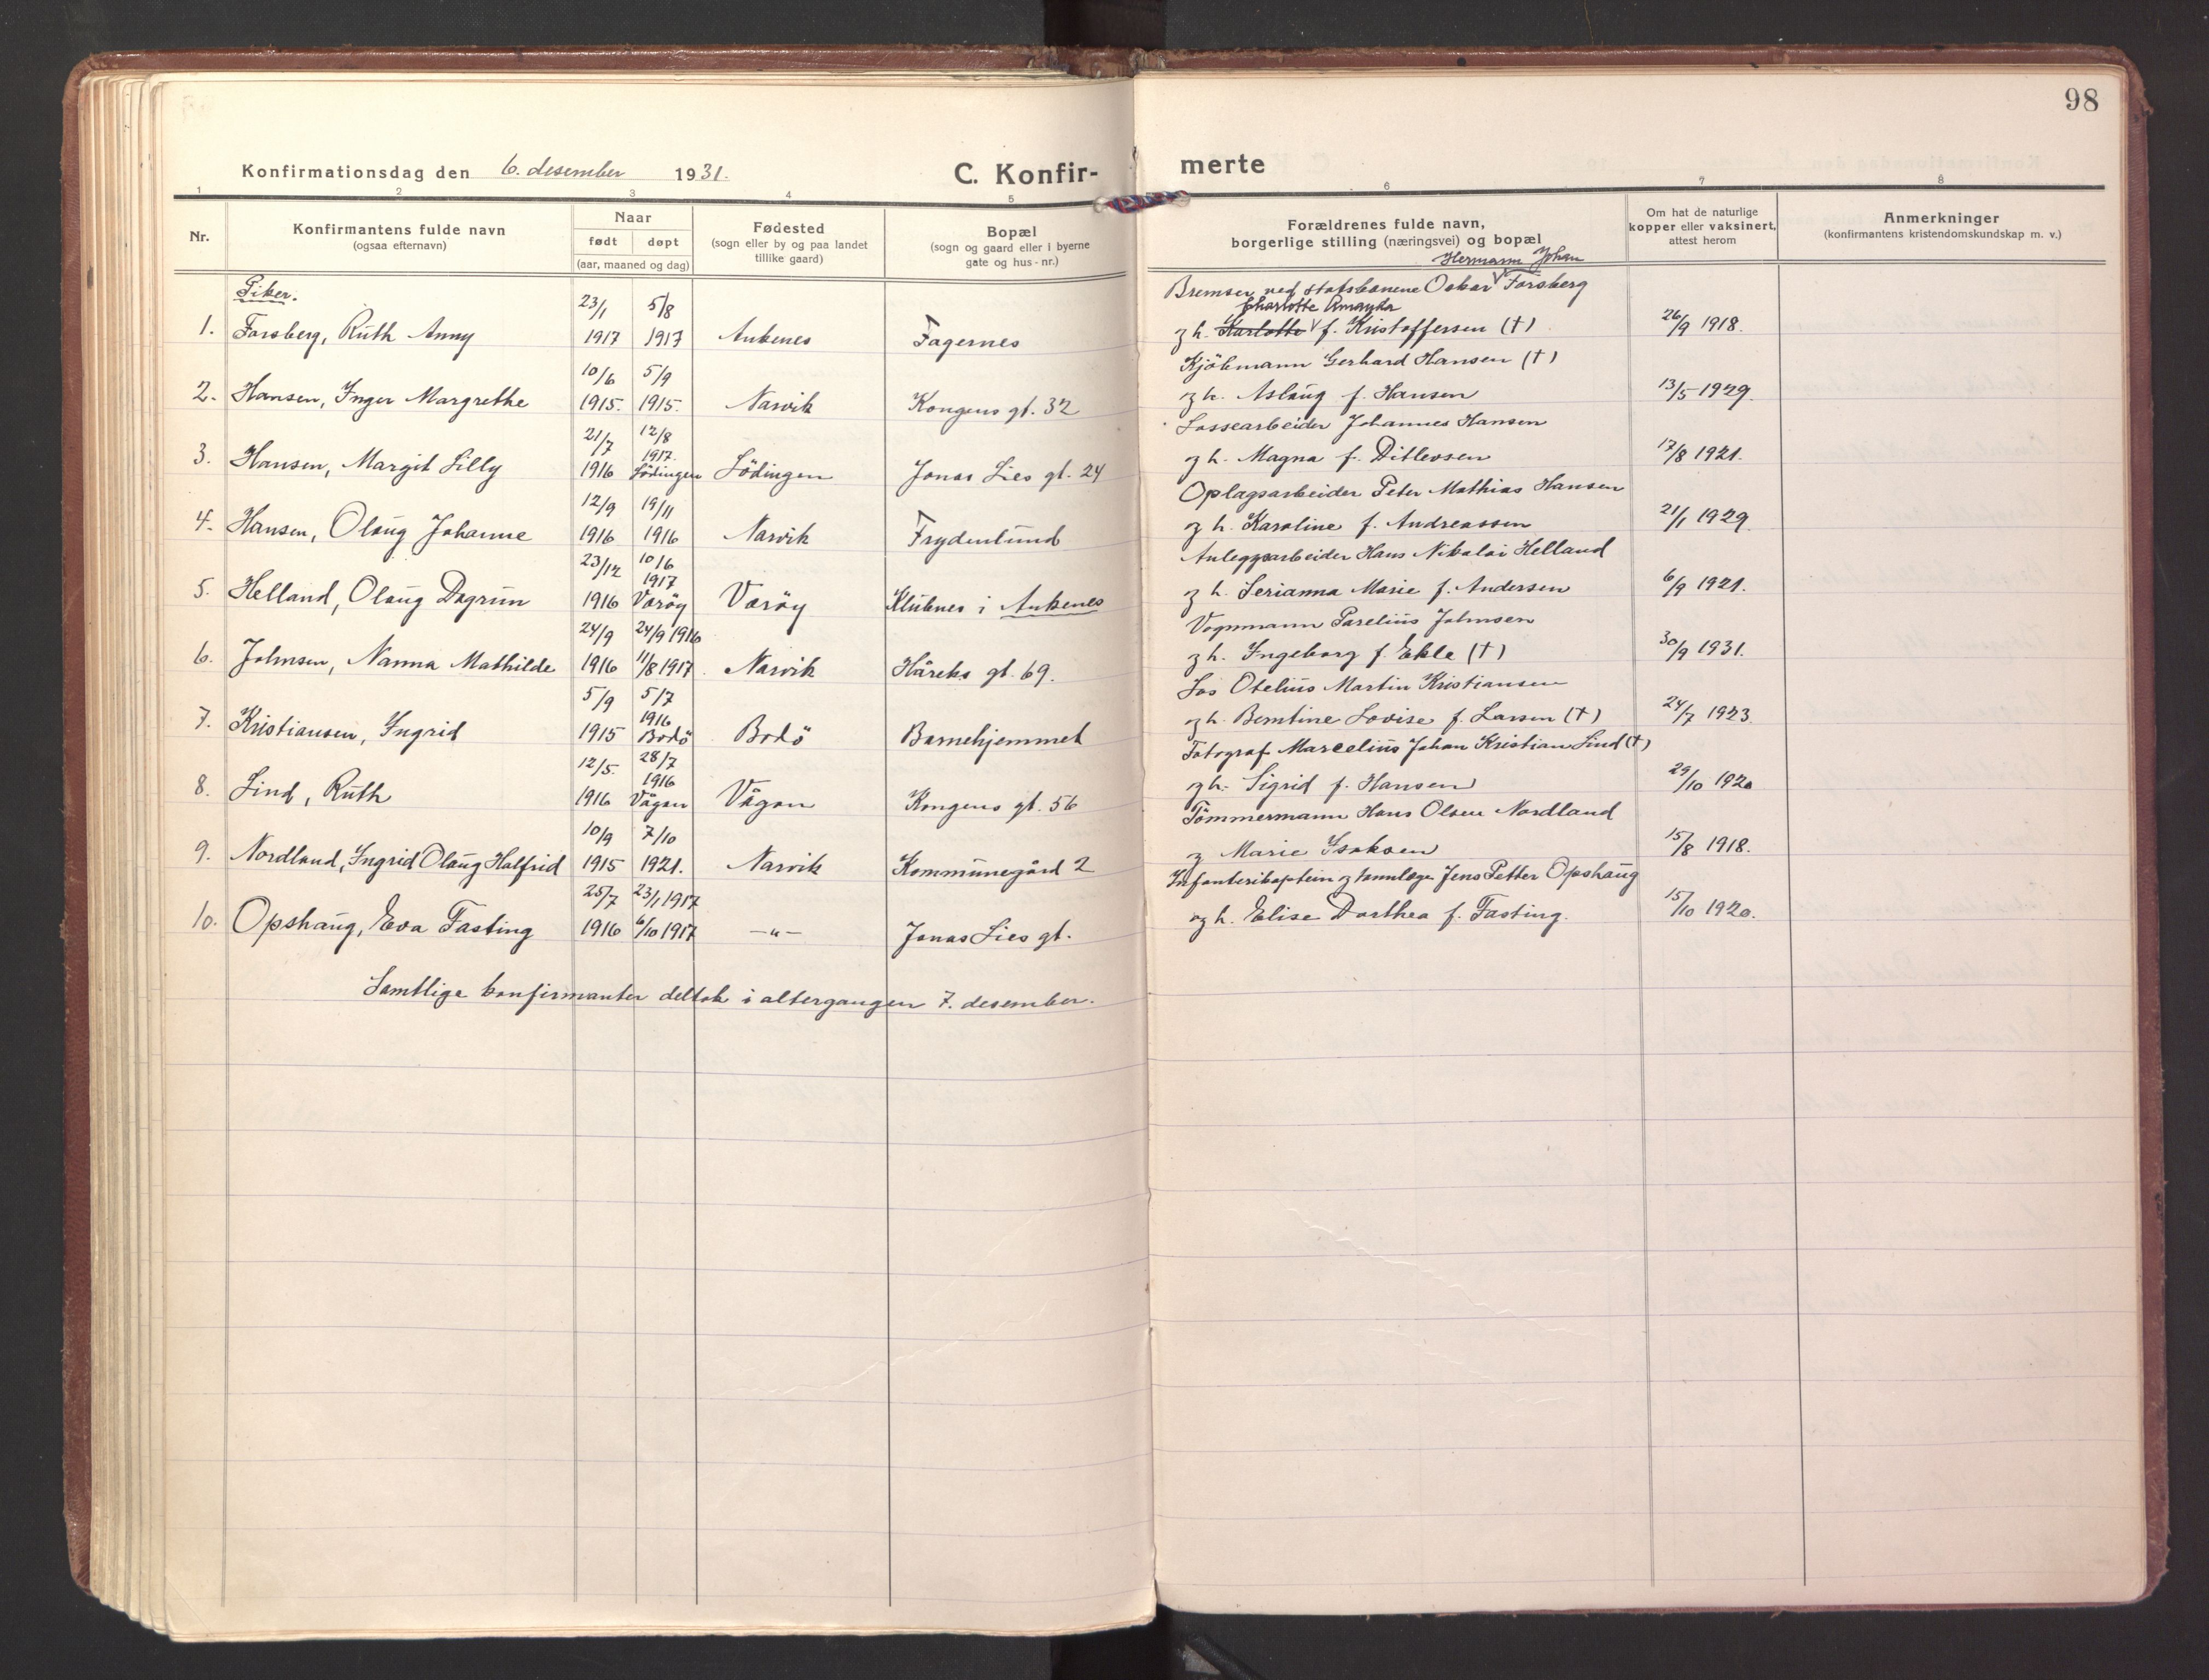 98
Konfirmationsdag den 6. desember 1931.
C. Konfir-merte
1 2 3 4 5 6 7 8
Nr.
Konfirmantens fulde navn
(ogsaa efternavn)
Naar
født døpt
(aar, maaned og dag)
Fødested
(sogn eller by og paa landet
tillike gaard)
Bopæl
(sogn og gaard eller i byerne
gate og hus-nr.)
Forældrenes fulde navn,
borgerlige stilling (næringsvei) og bopæl
Om hat de naturlige
kopper eller vaksinert,
attest herom
Anmerkninger
(konfirmantens kristendomskundskap m. v.)
Piker.
Hermann Johan
23/1 5/8 Bremser ved statsbanene Oskar Forsberg
Charlotte Amanda
1. Forsberg, Ruth Anny 1917 1917 Ankenes Fagernes og h. Karlotte f. Kristoffersen (†) 26/9 1918.
10/6 5/9 Kjøbmann Gerhard Hansen (†)
2. Hansen, Inger Margrethe 1915. 1915. Narvik Kongens gt. 32 og h. Aslaug f. Hansen 13/5 1929.
21/7 12/8 Lossearbeider Johannes Hansen
1917.
3. Hansen, Margit Lilly 1916 Lödingen Lödingen Jonas Lies gt. 24 og h. Magna f. Ditlevsen 17/8 1921.
12/9 19/11 Oplagsarbeider Peter Mathias Hansen
4. Hansen, Olaug Johanne 1916 1916 Narvik Frydenlund og h. Karoline f. Andreassen 21/1 1929.
23/12 10/6 Anleggsarbeider Hans Nikolai Helland
1917
5. Helland, Olaug Dagrun 1916 Værøy Værøy Klubnes i Ankenes og h. Serianna Marie f. Andersen 6/9 1921.
24/9 24/9 1916 Vognmann Parelius Johnsen
6. Johnsen, Nanna Mathilde 1916 11/8 1917. Narvik Håreks gt. 69. og h. Ingeborg f. Ekle (†) 30/9 1931.
5/9 5/7 Los Otelius Martin Kristiansen
1916
7. Kristiansen, Ingrid 1915 Bodö Bodö Barnehjemmet og h. Berntine Lovise f. Larsen (†) 24/7 1923.
12/5. 28/7 Fotograf Marcelius Johan Kristian Lind (†)
1916
8. Lind, Ruth 1916 Vågan Vågan Kongens gt. 56 og h. Sigrid f. Hansen 29/10 1920
10/9 7/10 Tömmermann Hans Olsen Nordland
9. Nordland, Ingrid Olaug Halfrid 1915 1921. Narvik Kommunegård 2 og Marie Isaksen 15/8 1918.
25/7 23/1 1917 Infanterikaptein og tannlæge Jens Petter Opshaug
10. Opshaug, Eva Fasting 1916 6/10 1917 —"— Jonas Lies gt. og h. Elise Dorthea f. Fasting. 15/10 1920.
Samtlige konfirmanter deltok i altergangen 7. desember.